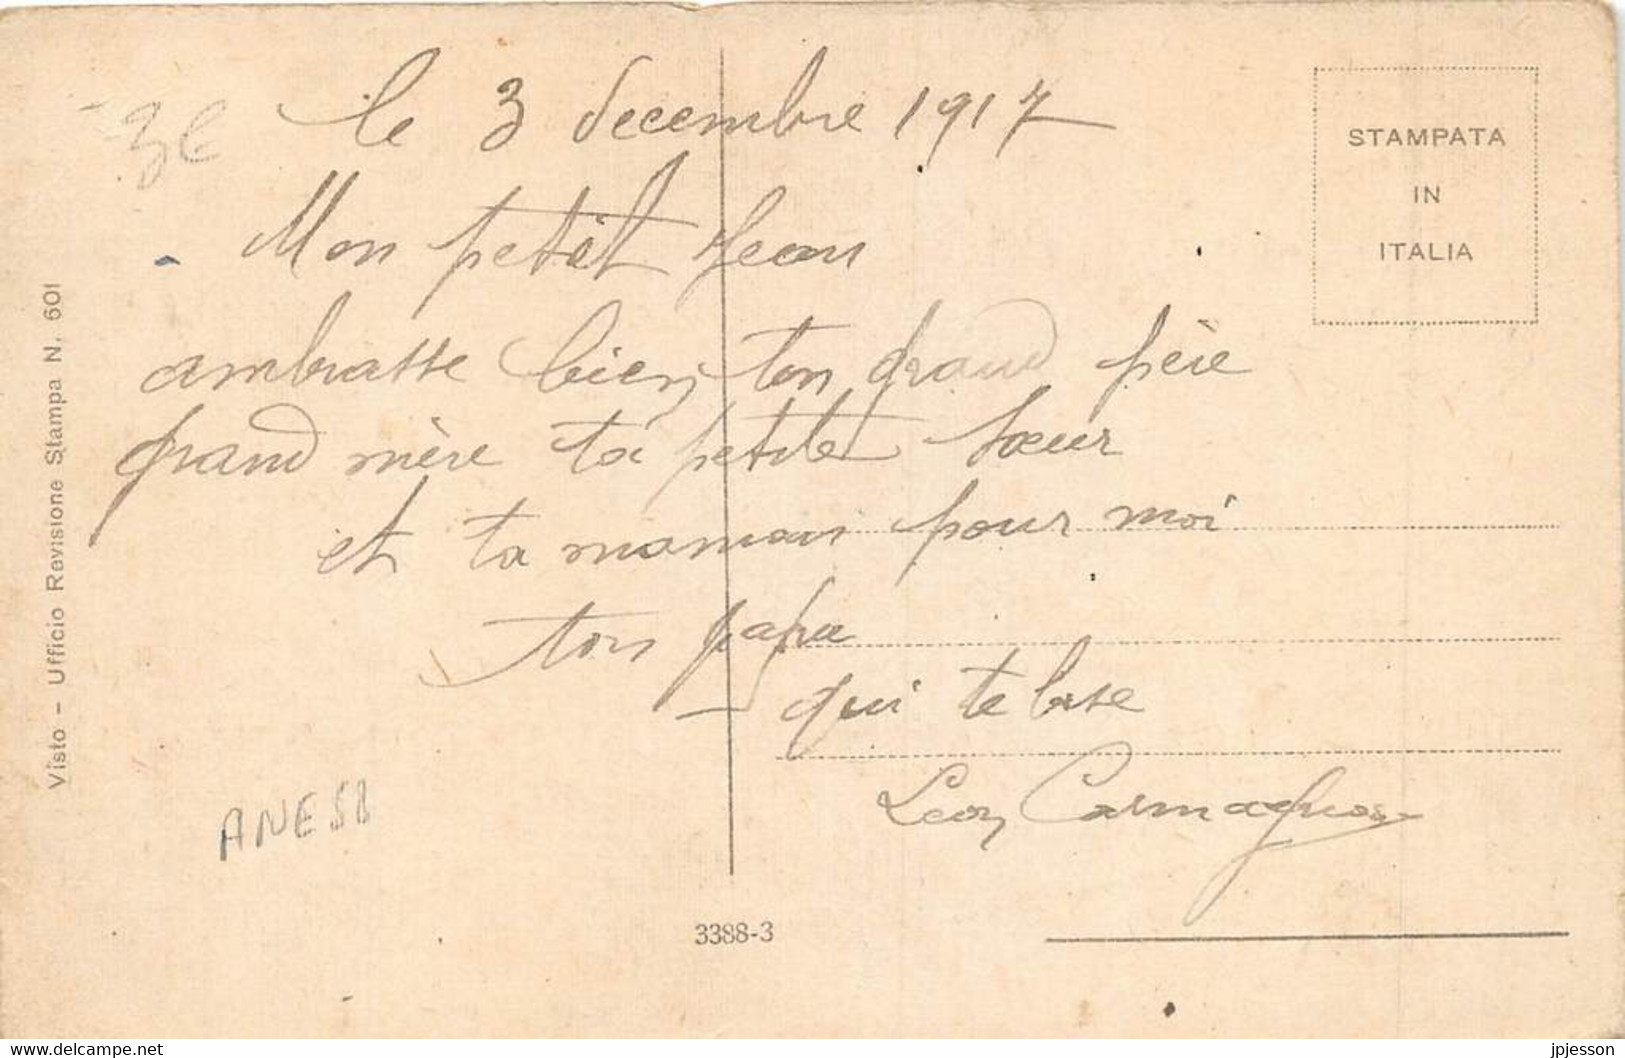 3€
le 3 decembre 1917
Mon petit Jean
ambrasse bien ton grand père
grand mère ta petite sœur
et ta maman pour moi
ton papa
qui te base
Léon
ANESB
STAMPATA
IN
ITALIA
Visto - Ufficio Revisione Stampa N. 601
3388-3
www.delcampe.net
jpjesson